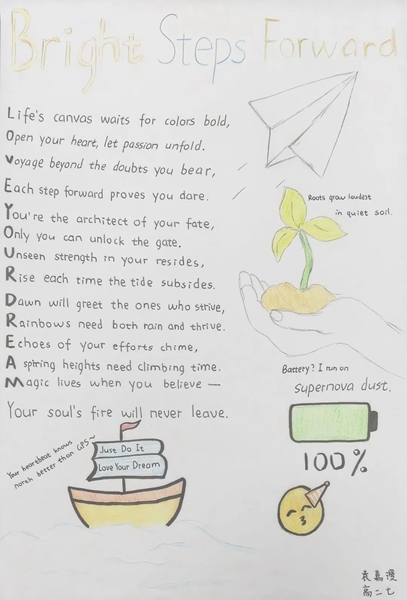 Bright Steps Forward
Life's canvas waits for colors bold,
Open your heart, let passion unfold.
Voyage beyond the doubts you bear,
Each step forward proves you dare.
You're the architect of your fate,
Only you can unlock the gate.
Unseen strength in your resides,
Rise each time the tide subsides.
Dawn will greet the ones who strive,
Rainbows need both rain and thrive.
Echoes of your efforts chime,
Aspiring heights need climbing time.
Magic lives when you believe —
Your soul's fire will never leave.
Roots grow loudest
in quiet soil.
Battery? I run on
supernova dust.
100%
Your heartbeat knows
north better than GPS~
Just Do It
Love Your Dream
袁嘉漫
高二七